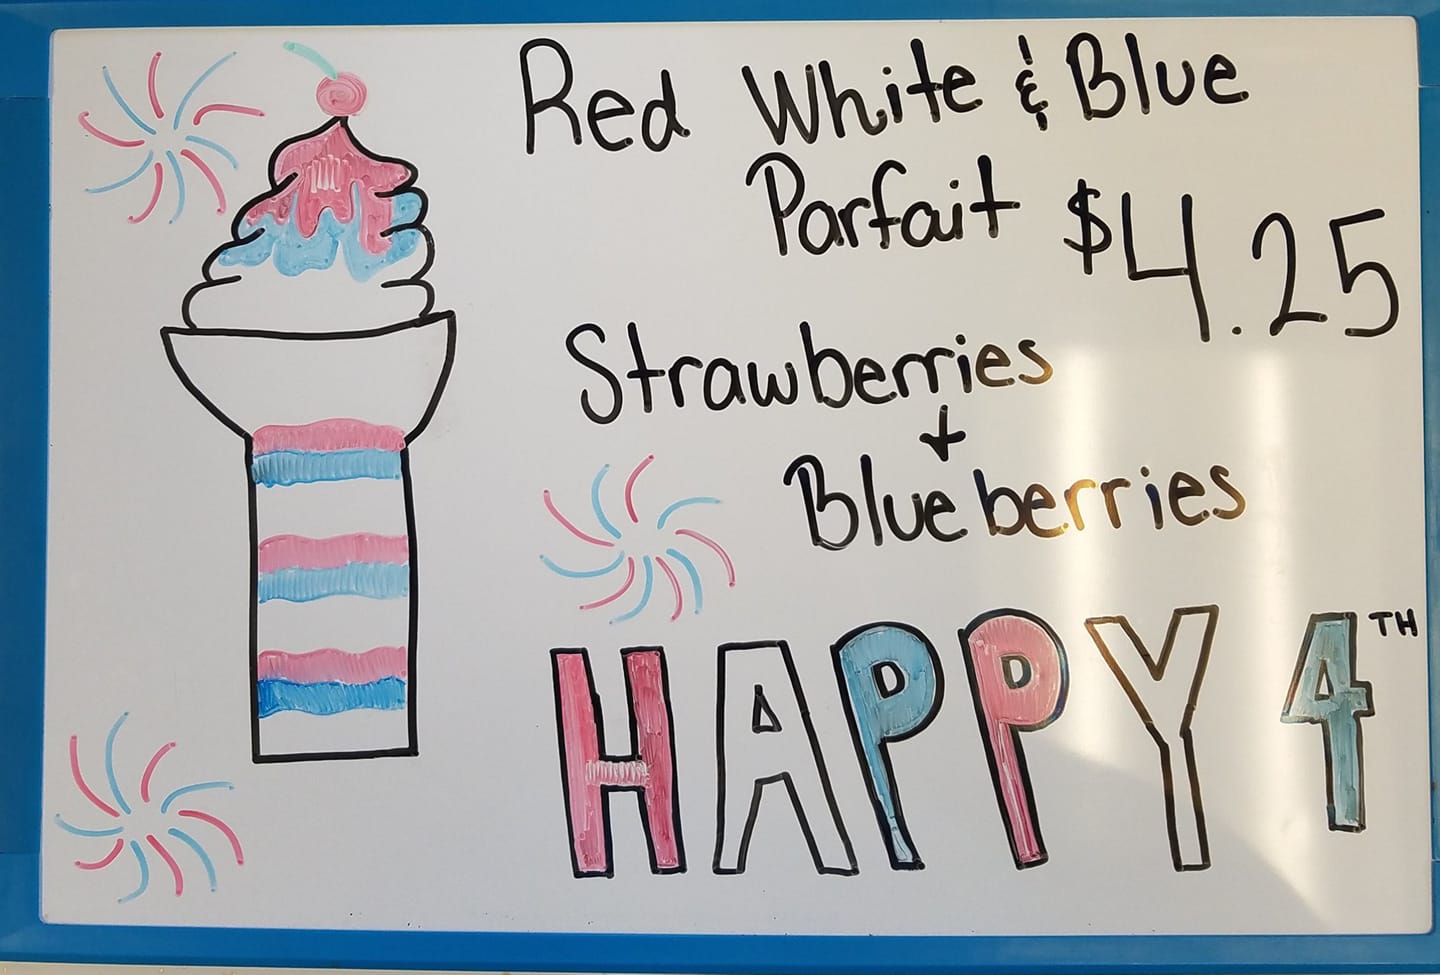 Red White & Blue
Parfait $4.25
Strawberries
+
Blueberries
HAPPY 4TH